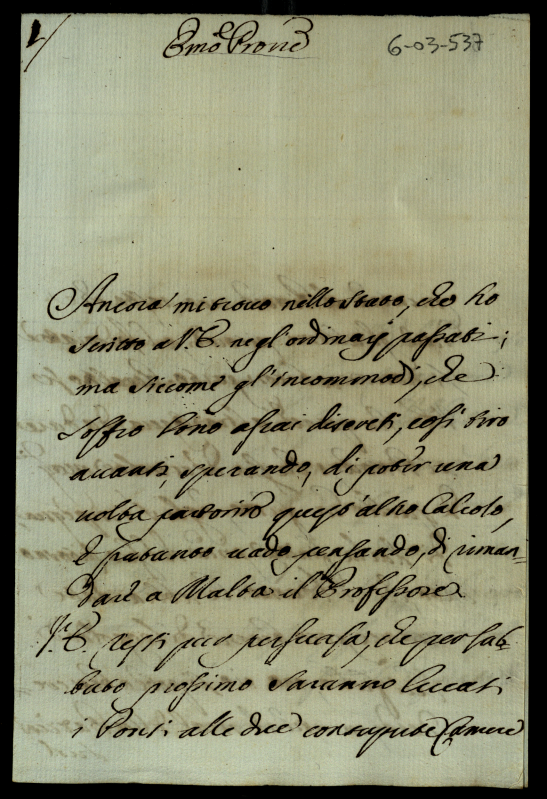 1/
Emo͏̃ e Prone
6-03-537
Ancora mi trovo nello stato, che ho
scritto a V.E. negl'ordinarij passati;
ma siccome gl'incommodi, che
soffro sono assai discreti, così tiro
avanti, sperando, di poter una
volta partorire quest'altro Calcolo,
e pertanto vado pensando, di riman-
dare a Malta il Professore.
V.E. resti pur persuasa, che per sab-
bato prossimo saranno levati
i Ponti alle due consapute Camere